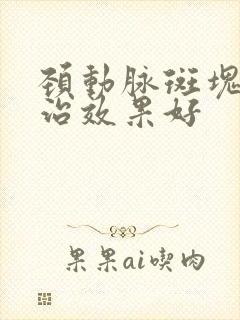 頚動脉斑塊
治效果好
果果ai喫肉